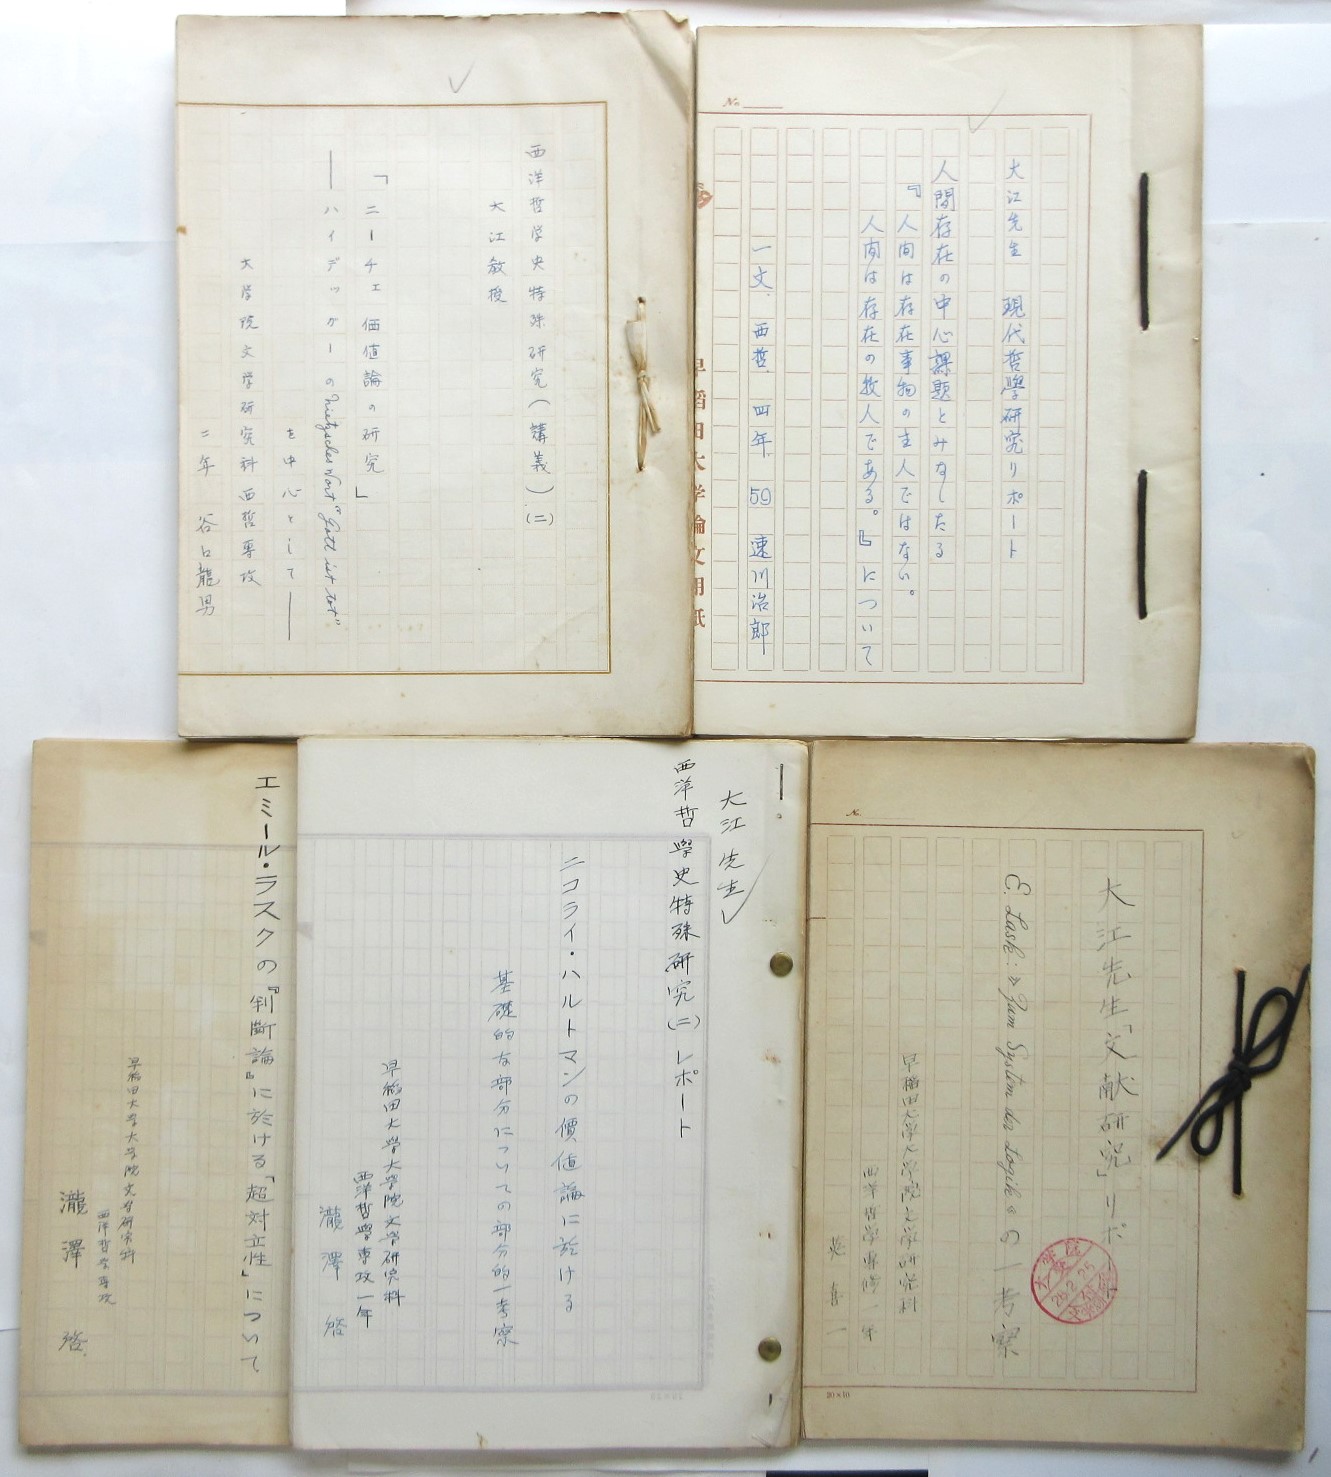 西洋哲学史特殊研究（講義）（二）
大江教授
「ニーチェ価値論の研究」
――ハイデッガーの Nietzsches Wort "Gott ist tot"
を中心として――
大学院文学研究科西哲専攻
二年 谷口龍男
No.
大江先生 現代哲學研究リポート
人間存在の中心課題とみなしたる
『人間は存在事物の主人ではない。
人間は存在の牧人である。』について
一文. 西哲. 四年 59 速川浩郎
早稲田大学論文用紙
エミール・ラスクの『判斷論』に於ける「超対立性」について
早稲田大学大学院文学研究科
西洋哲学専攻
瀧澤 啓
大江先生
西洋哲學史特殊研究（二）レポート
ニコライ・ハルトマンの價値論に於ける
基礎的な部分についての部分的一考察
早稲田大學大學院文学研究科
西洋哲學専攻一年
瀧澤 啓
No.
大江先生「文献研究」リポ
E. Lask: » Zum System der Logik « の一考察
早稲田大学大学院文学研究科
西洋哲学専修一年
喜一
26.2.25
20×10